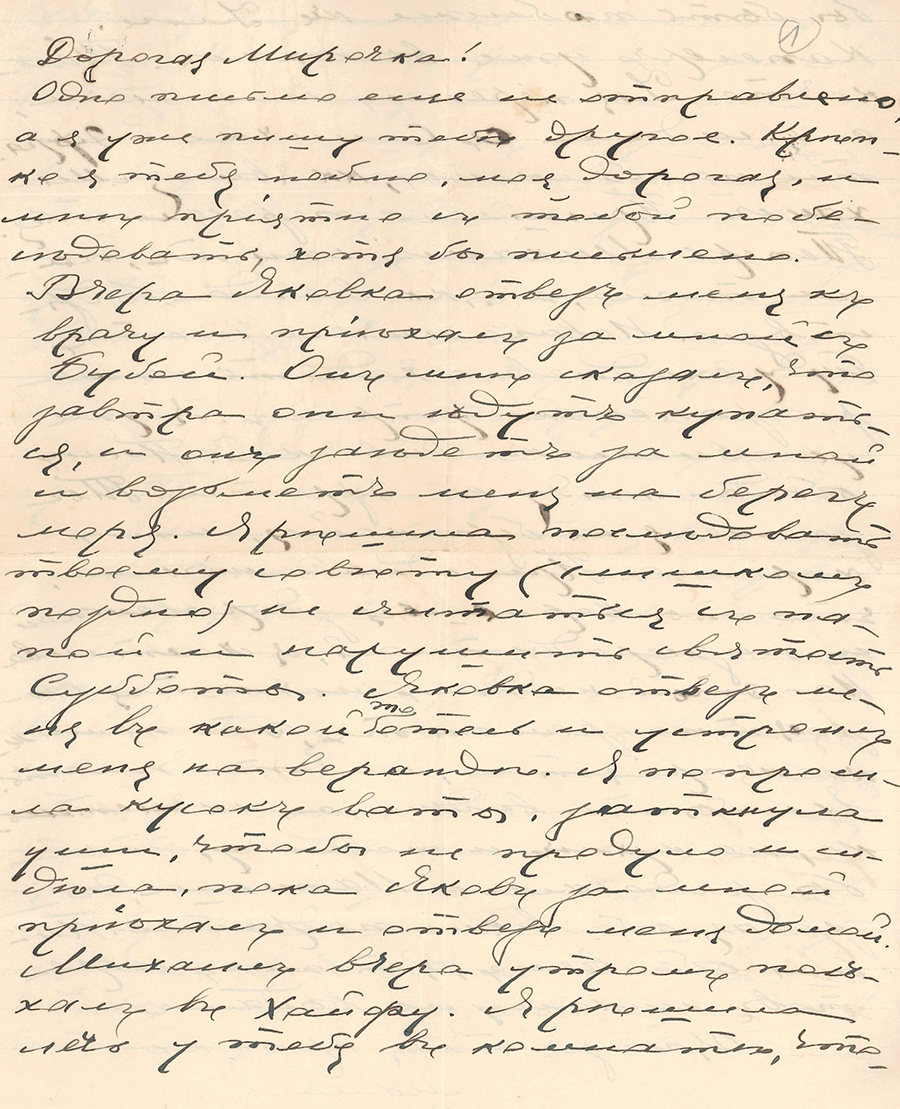 1
Дорогая Мирочка!
Одно письмо еще не отправлено,
а я уже пишу тебѣ другое. Крѣп-
ко я тебя люблю, моя дорогая, и
мнѣ пріятно съ тобой побе-
сѣдовать, хотя бы письмено.
Вчера Яковка отвезъ меня къ
врачу и пріѣхалъ за мной съ
Бубой. Онъ мнѣ сказалъ, что
завтра они ѣдутъ купать-
ся, и онъ заѣдетъ за мной
и возьметъ меня на берегъ
моря. Я рѣшила послѣдовать
твоему совѣту (слишкомъ
поздно) не считаться съ па-
пой и нарушить святость
Субботы. Яковка отвезъ ме-
ня въ какой то отель и устроилъ
меня на верандѣ. Я попроси-
ла кусокъ ваты, заткнула
уши, чтобы не продуло и си-
дѣла, пока Яковъ за мной
пріѣхалъ и отвезъ меня домой.
Михаилъ вчера утромъ поѣ-
халъ въ Хайфу. Я рѣшила
лечь у тебя въ комнатѣ, что-